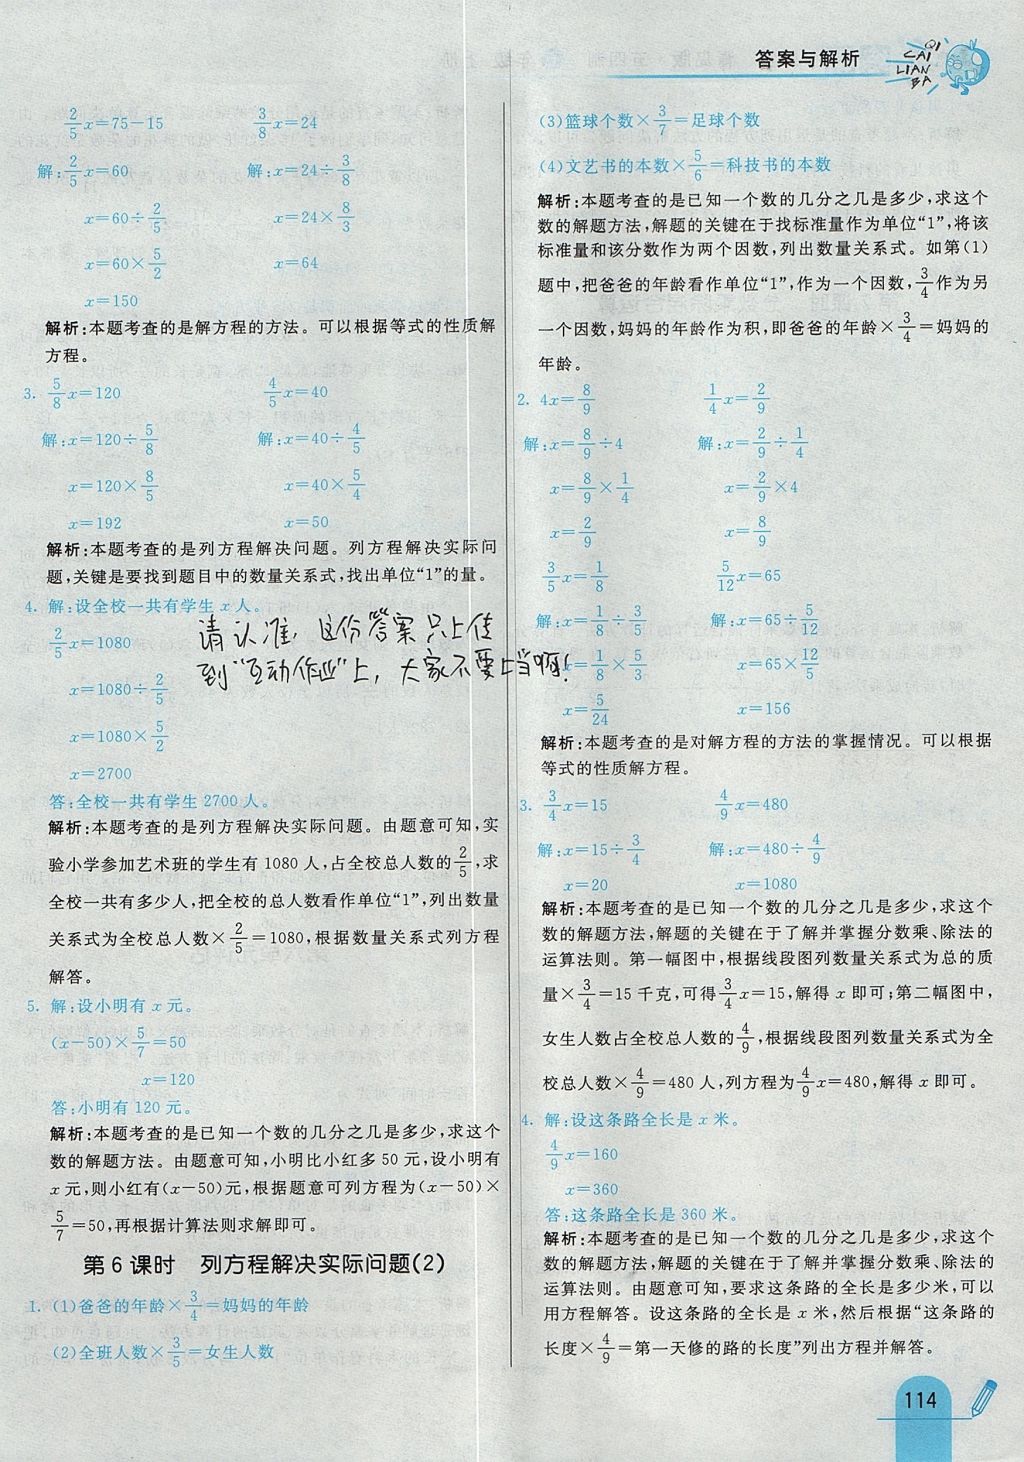 答案与解析
QI
CAI
LIAN
BA
2/5x=75-15
解:2/5x=60
x=60÷2/5
x=60×5/2
x=150
3/8x=24
解:x=24÷3/8
x=24×8/3
x=64
解析:本题考查的是解方程的方法。可以根据等式的性质解
方程。
3. 5/8x=120
解:x=120÷5/8
x=120×8/5
x=192
4/5x=40
解:x=40÷4/5
x=40×5/4
x=50
解析:本题考查的是列方程解决问题。列方程解决实际问
题,关键是要找到题目中的数量关系式,找出单位“1”的量。
4. 解:设全校一共有学生 x 人。
2/5x=1080
x=1080÷2/5
x=1080×5/2
x=2700
答:全校一共有学生2700人。
请认准,这份答案只上传
到“互动作业”上,大家不要上当啊!
解析:本题考查的是列方程解决实际问题。由题意可知,实
验小学参加艺术班的学生有1080人,占全校总人数的2/5,求
全校一共有多少人,把全校的总人数看作单位“1”,列出数量
关系式为全校总人数×2/5=1080,根据数量关系式列方程
解答。
5. 解:设小明有 x 元。
(x-50)×5/7=50
x=120
答:小明有120元。
解析:本题考查的是已知一个数的几分之几是多少,求这个
数的解题方法。由题意可知,小明比小红多50元,设小明有
x元,则小红有(x-50)元,根据题意可列方程为(x-50)×
5/7=50,再根据计算法则求解即可。
第6课时 列方程解决实际问题(2)
1. (1)爸爸的年龄×3/4=妈妈的年龄
(2)全班人数×3/5=女生人数
(3)篮球个数×3/7=足球个数
(4)文艺书的本数×5/6=科技书的本数
解析:本题考查的是已知一个数的几分之几是多少,求这个
数的解题方法,解题的关键在于找标准量作为单位“1”,将该
标准量和该分数作为两个因数,列出数量关系式。如第(1)
题中,把爸爸的年龄看作单位“1”,作为一个因数,3/4作为另
一个因数,妈妈的年龄作为积,即爸爸的年龄×3/4=妈妈的
年龄。
2. 4x=8/9
解:x=8/9÷4
x=8/9×1/4
x=2/9
1/4x=2/9
解:x=2/9÷1/4
x=2/9×4
x=8/9
3/5x=1/8
解:x=1/8÷3/5
x=1/8×5/3
x=5/24
5/12x=65
解:x=65÷5/12
x=65×12/5
x=156
解析:本题考查的是对解方程的方法的掌握情况。可以根据
等式的性质解方程。
3. 3/4x=15
解:x=15÷3/4
x=20
4/9x=480
解:x=480÷4/9
x=1080
解析:本题考查的是已知一个数的几分之几是多少,求这个
数的解题方法,解题的关键在于了解并掌握分数乘、除法的
运算法则。第一幅图中,根据线段图列数量关系式为总的质
量×3/4=15千克,可得3/4x=15,解得 x 即可;第二幅图中,
女生人数占全校总人数的4/9,根据线段图列数量关系式为全
校总人数×4/9=480人,列方程为4/9x=480,解得 x 即可。
4. 解:设这条路全长是 x 米。
4/9x=160
x=360
答:这条路全长是360米。
解析:本题考查的是已知一个数的几分之几是多少,求这个
数的解题方法,解题的关键在于了解并掌握分数乘、除法的
运算法则。由题意可知,要求这条路的全长是多少米,可以
用方程解答。设这条路的全长是 x 米,然后根据“这条路的
长度×4/9=第一天修的路的长度”列方程并解答。
114